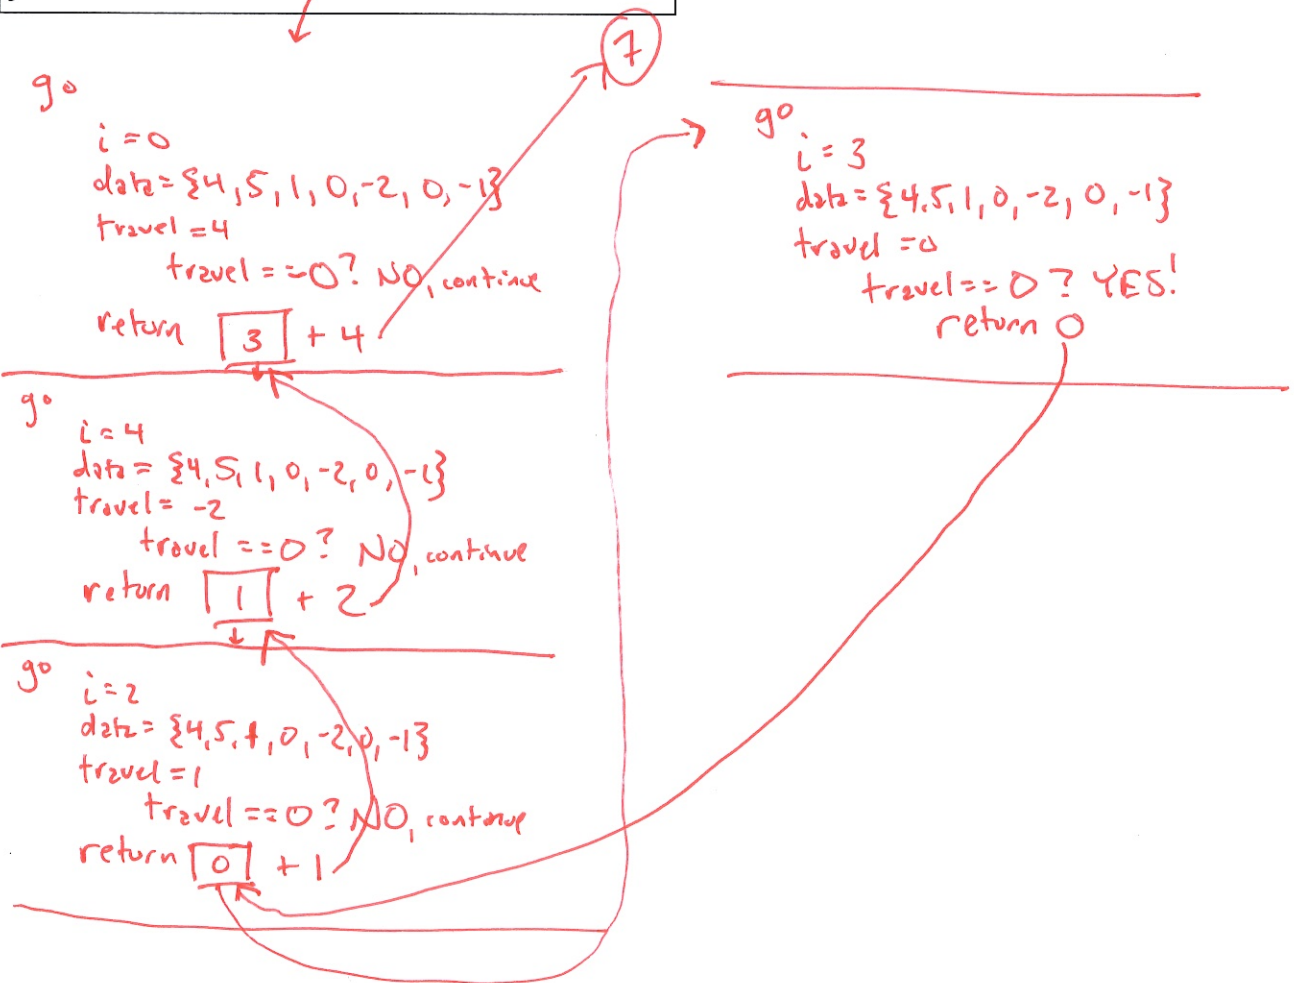 7
go
i=0
data={4,5,1,0,-2,0,-1}
travel=4
travel==0? NO, continue
return 3 + 4
go
i=4
data={4,5,1,0,-2,0,-1}
travel=-2
travel==0? NO, continue
return 1 + 2
go
i=2
data={4,5,1,0,-2,0,-1}
travel=1
travel==0? NO, continue
return 0 + 1
go
i=3
data={4,5,1,0,-2,0,-1}
travel=0
travel==0? YES!
return 0